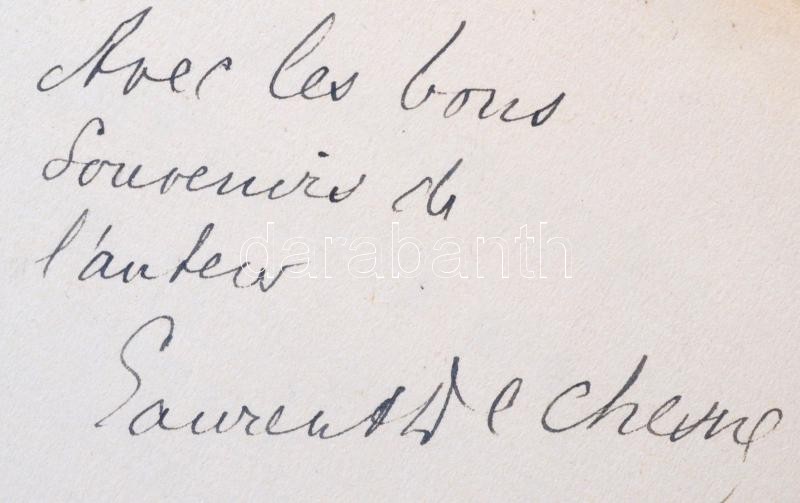 Avec les bons
Souvenirs de
l'auteur
darabanth
Laurent Dechesne